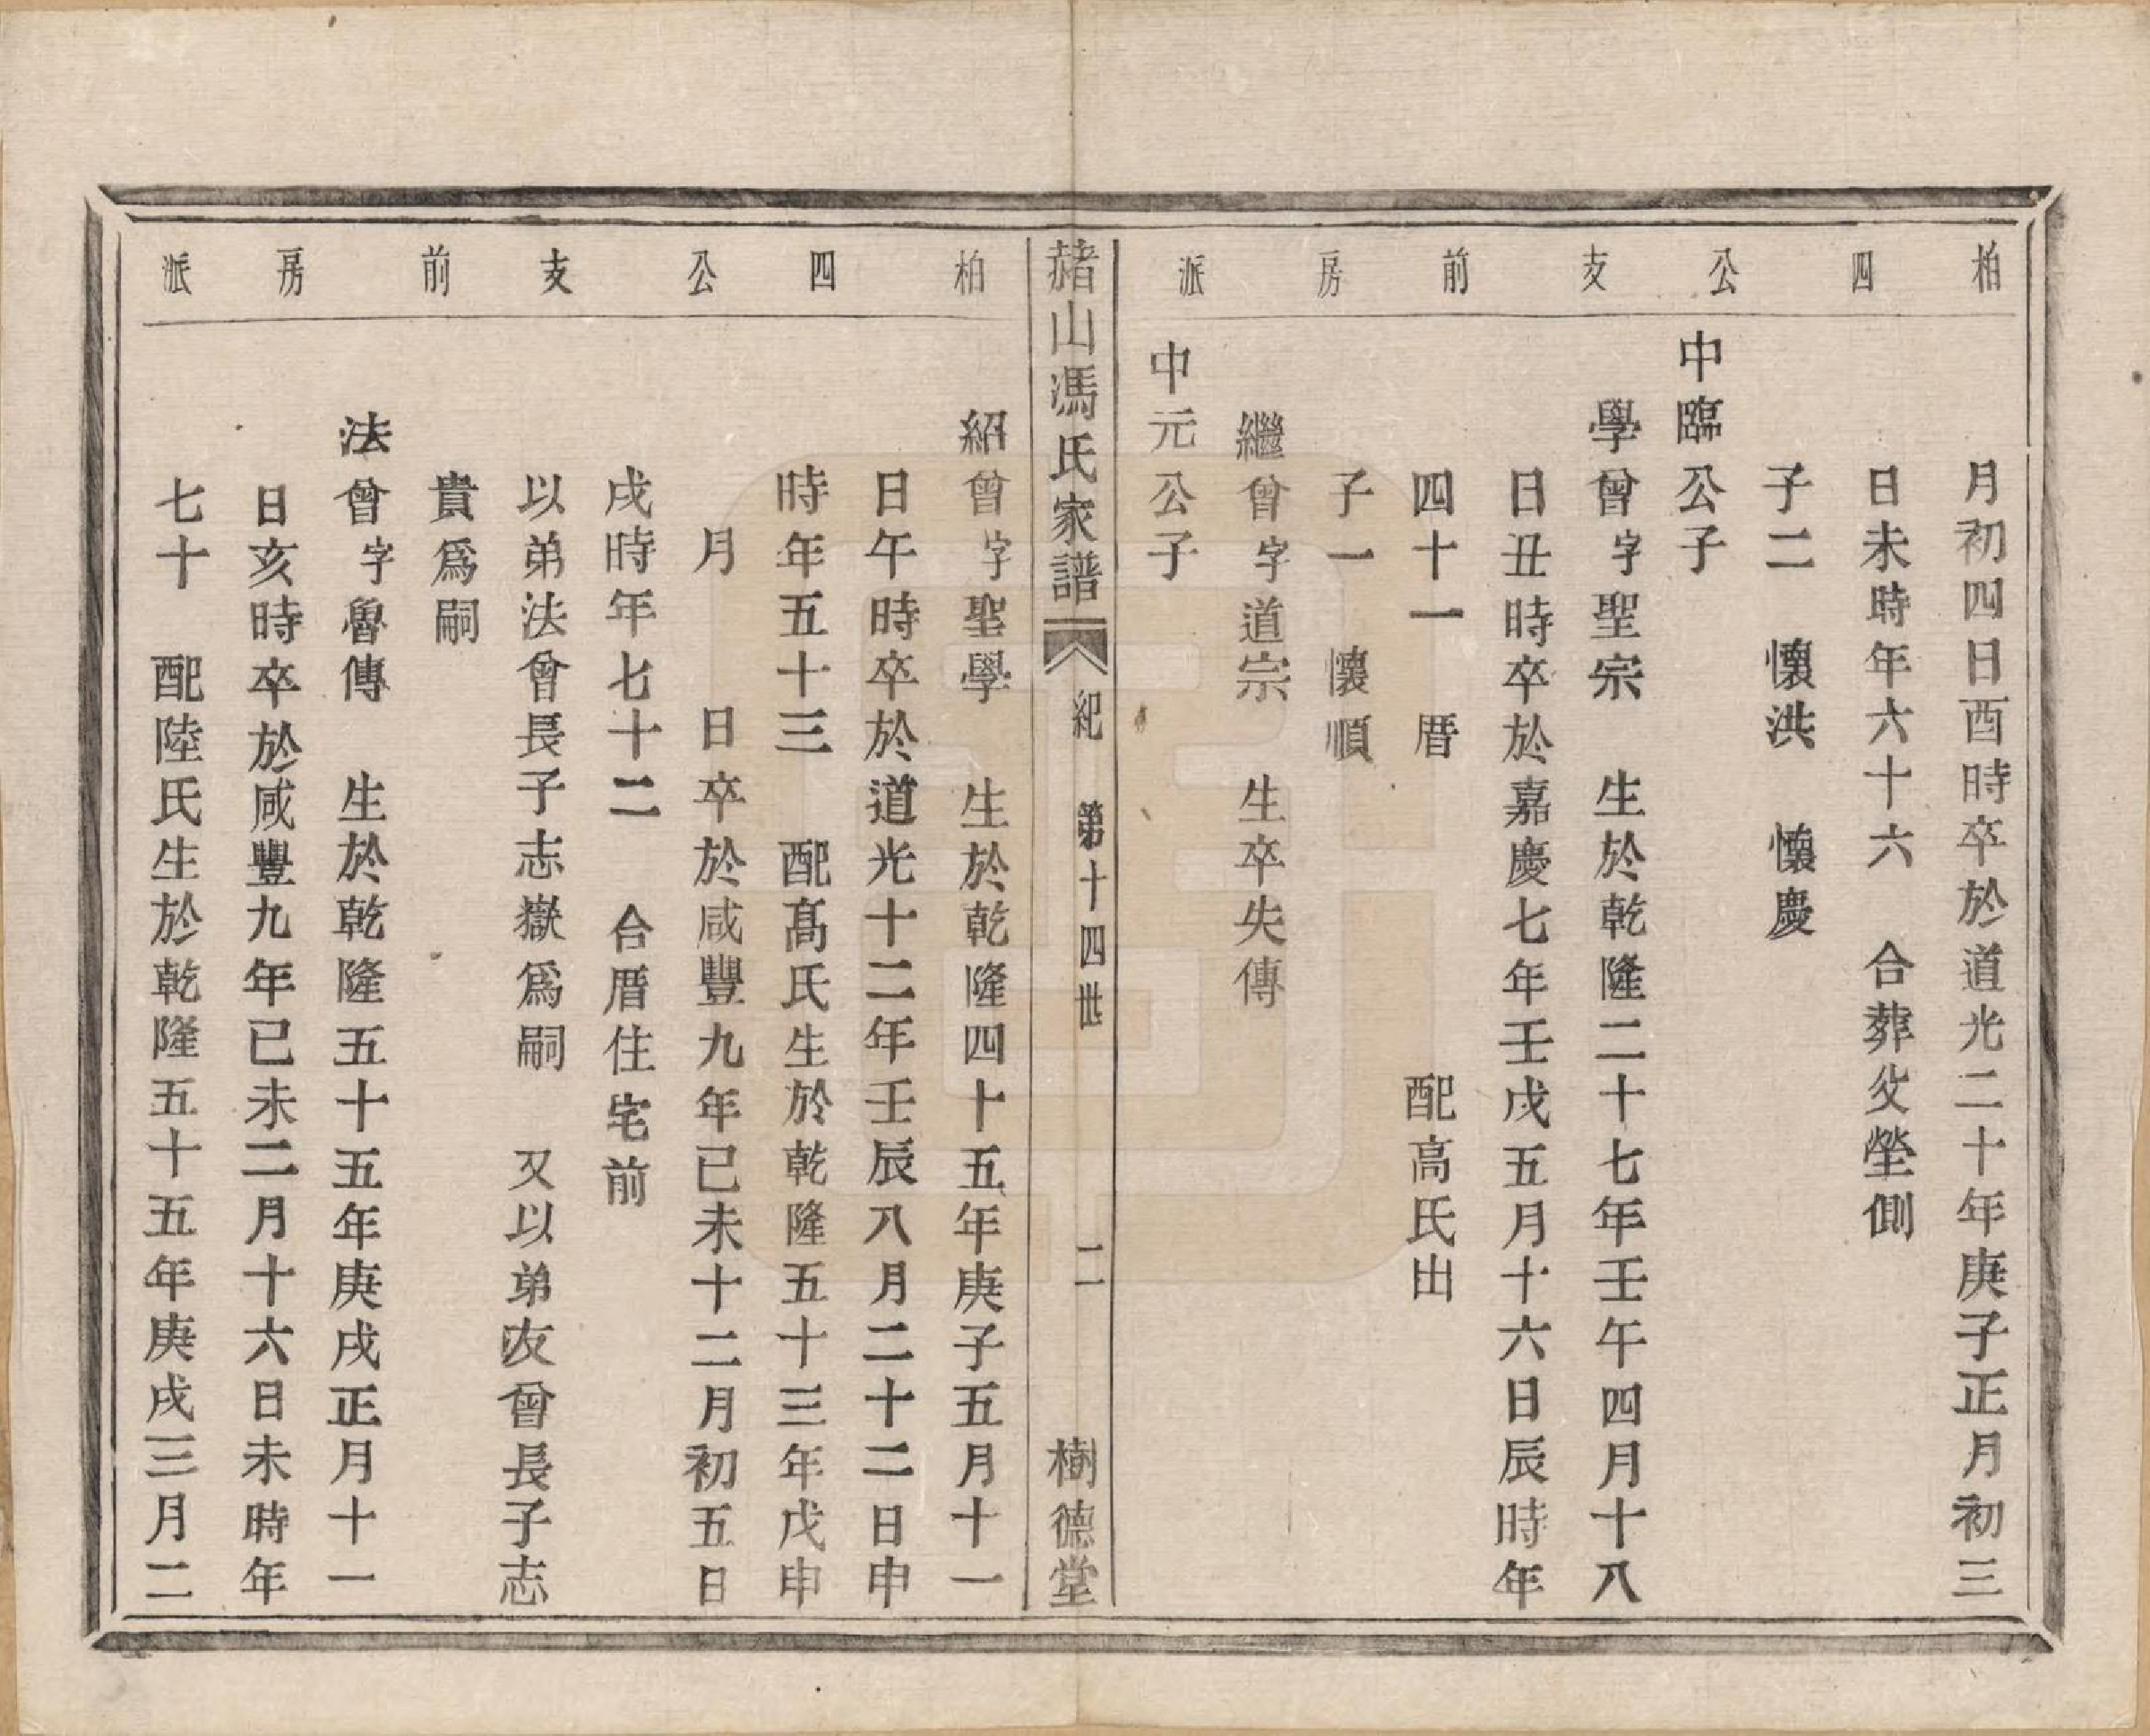 柏四公支前房派
月初四日酉時卒於道光二十年庚子正月初三
日未時年六十六　合葬父塋側
子二　懷洪　懷慶
中臨公子
學曾字聖宗　生於乾隆二十七年壬午四月十八
日丑時卒於嘉慶七年壬戌五月十六日辰時年
四十一　厝　配高氏出
子一　懷順
繼曾字道宗　生卒失傳
中元公子
赭山馮氏家譜　紀　第十四世　二　樹德堂
柏四公支前房派
紹曾字聖學　生於乾隆四十五年庚子五月十一
日午時卒於道光十二年壬辰八月二十二日申
時年五十三　配髙氏生於乾隆五十三年戊申
月　日卒於咸豐九年已未十二月初五日
戌時年七十二　合厝住宅前
以弟法曾長子志嶽爲嗣　又以弟友曾長子志
貴爲嗣
法曾字魯傳　生於乾隆五十五年庚戌正月十一
日亥時卒於咸豐九年已未二月十六日未時年
七十　配陸氏生於乾隆五十五年庚戌三月二